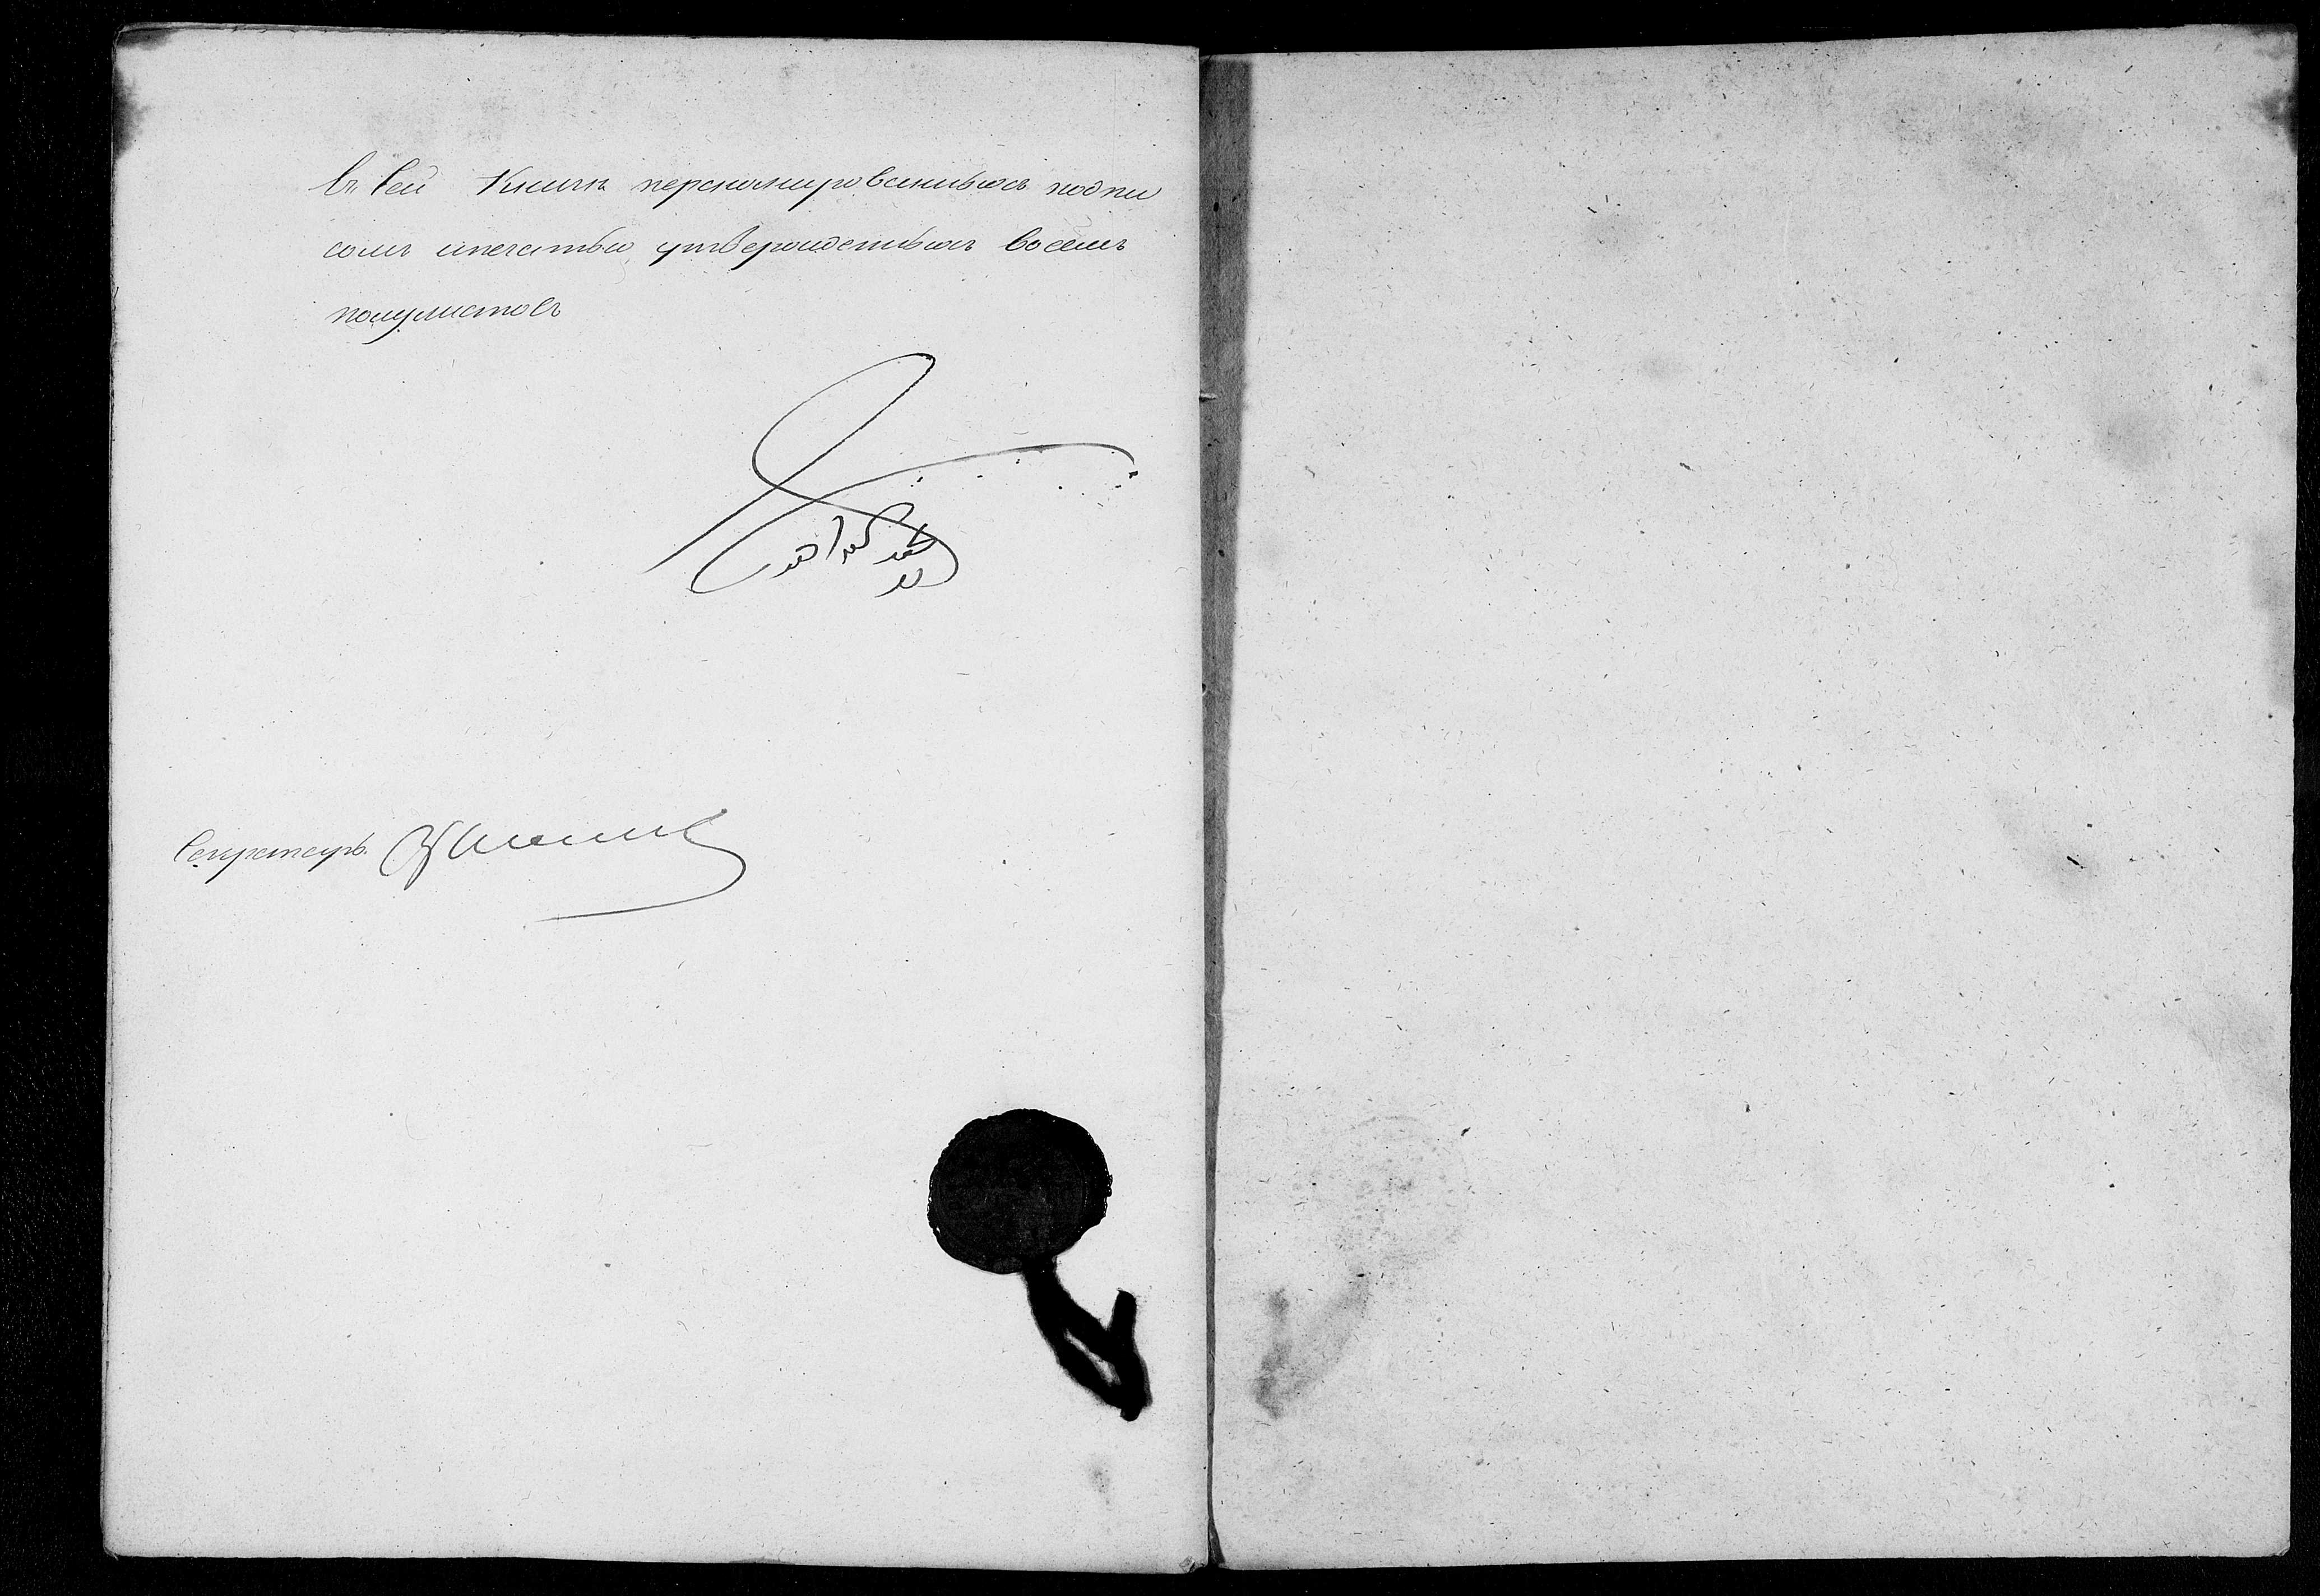 Въ сей Книгѣ перенумерованныхъ подпи
сомъ и печатью утвержденныхъ восемь
полулистовъ
Секретарь